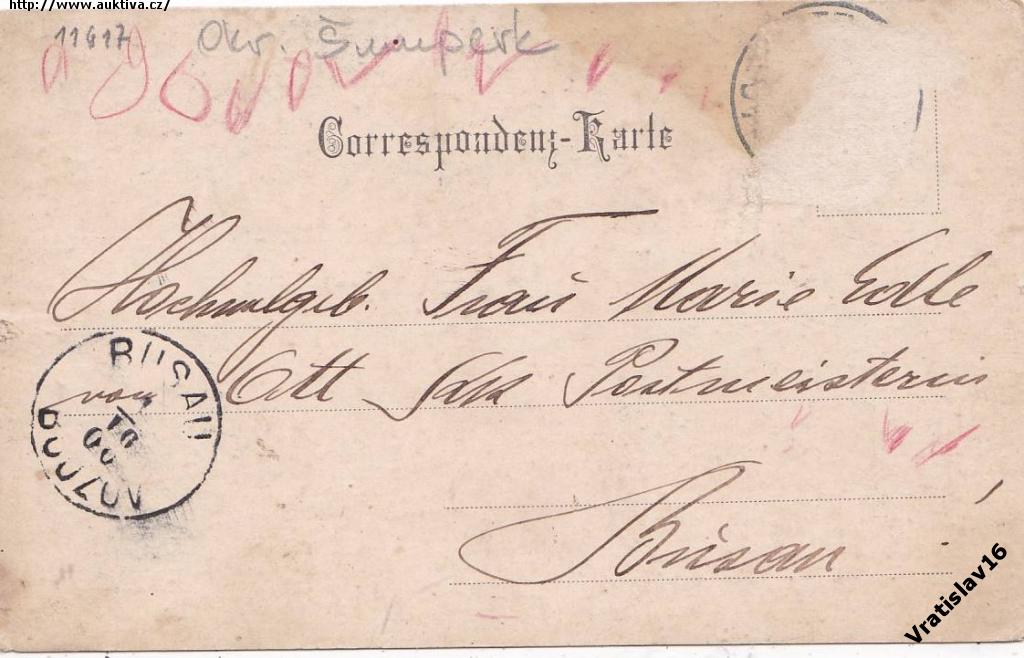 http://www.auktiva.cz/
11617 Okr. Šumperk
Correspondenz-Karte
Hochwolgeb. Frau Marie Edle
von Ott k.k. Postmeisterin
Búsau
BUSAU
BOUZOV
Vratislav16